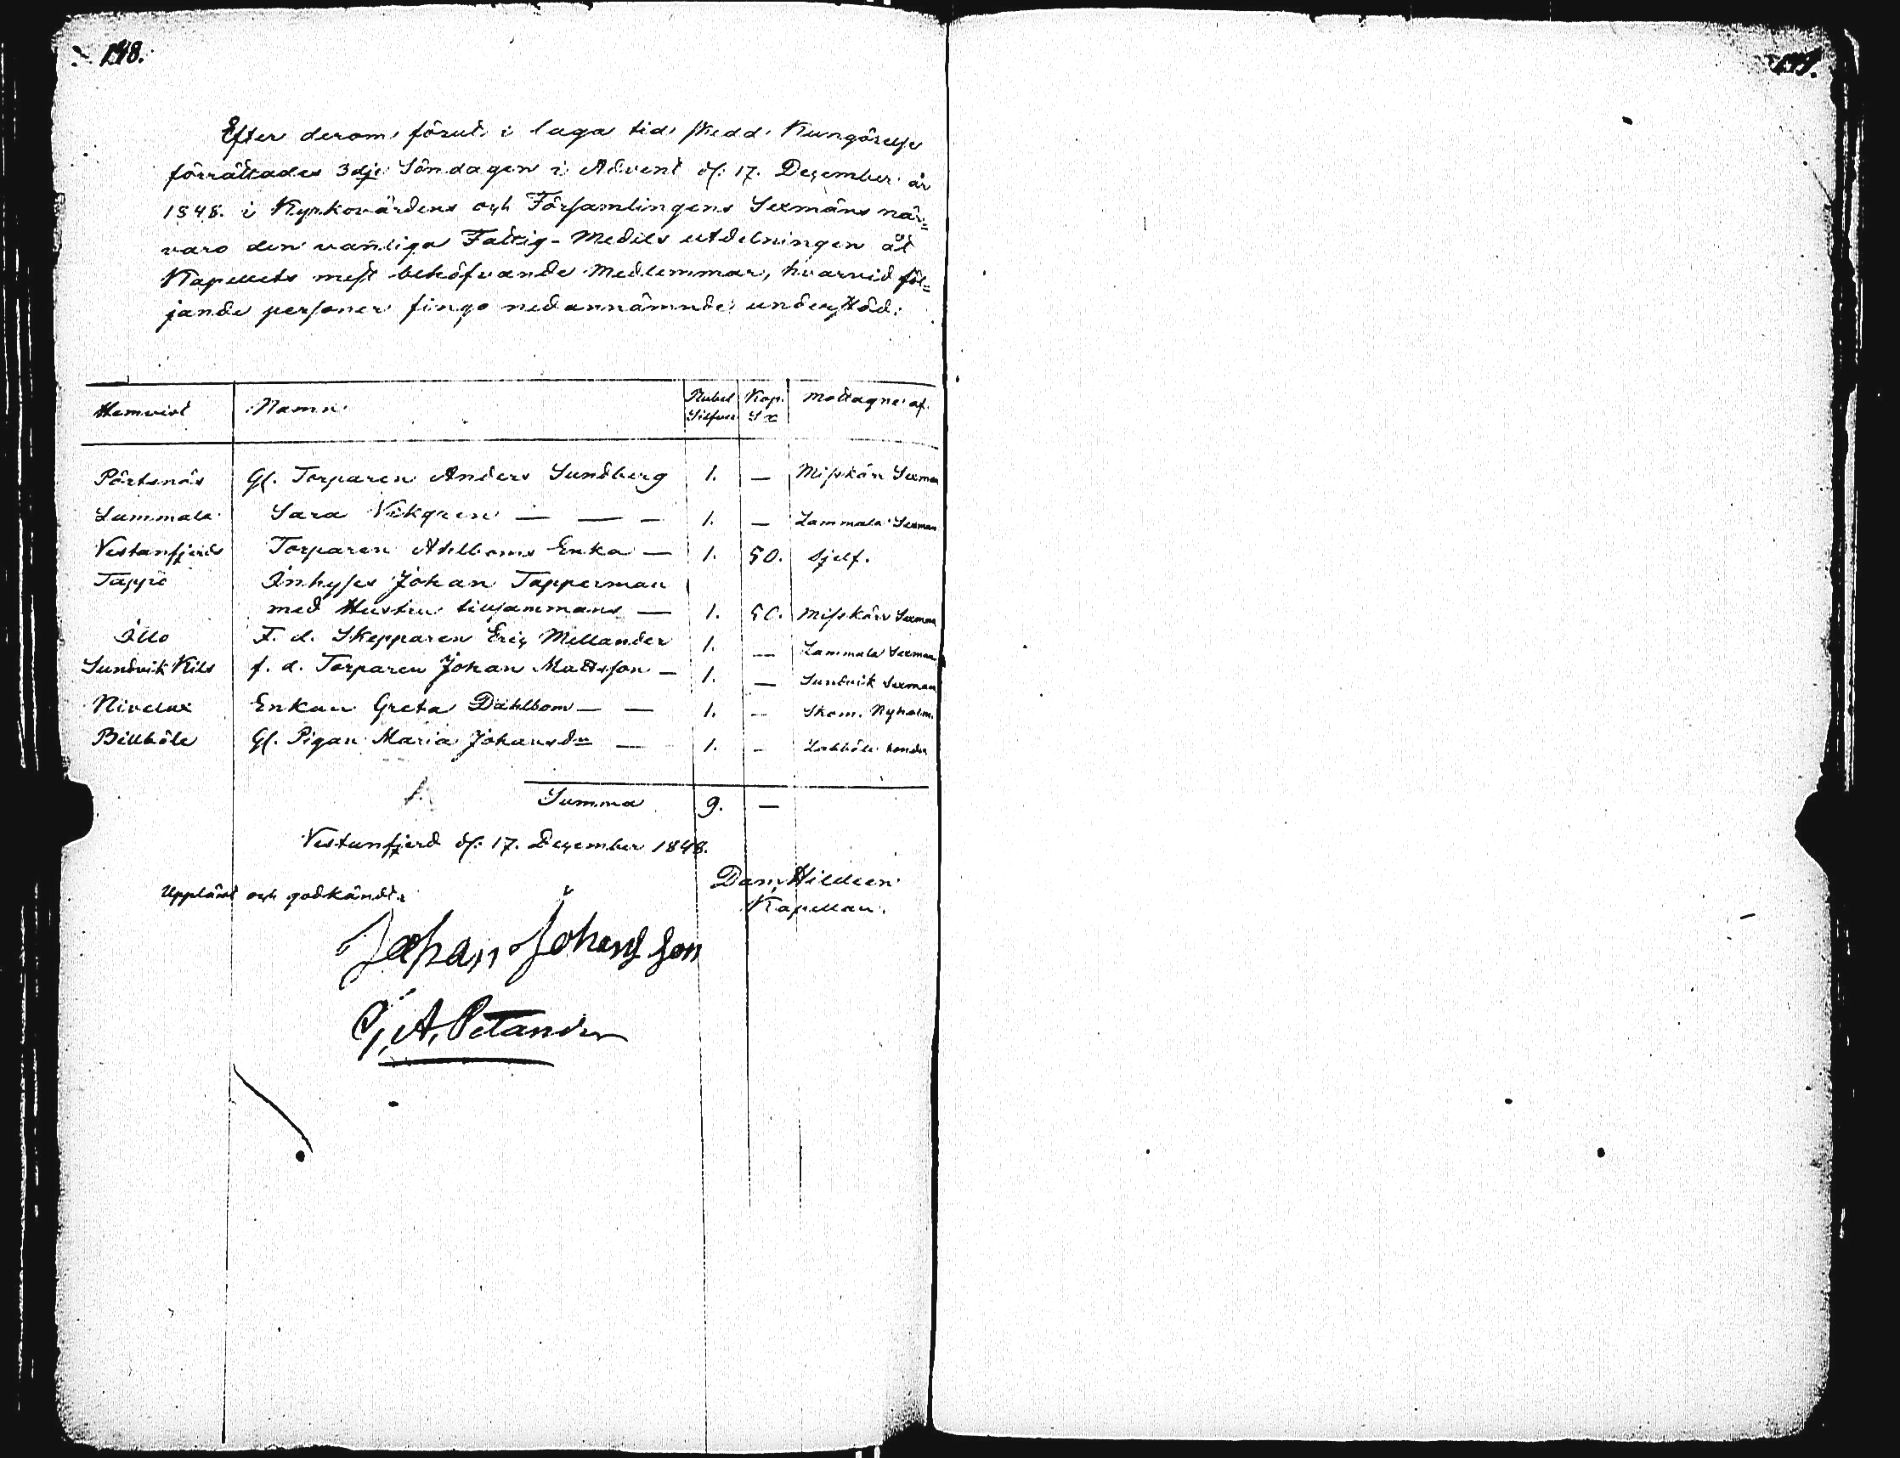 198.
Efter derom förut i laga tid skedd Kungörelse
förrättades 3dje Söndagen i Advent d. 17. December år
1848. i Kyrkovärdens och Församlingens Sexmäns när-
varo den vanliga Fattig-Medels utdelningen åt
Kapellets mest behöfvande Medlemmar, hvarvid föl-
jande personer fingo nedannämnde understöd:
Hemvist Namn Rubel Silfver Kop. Sr Mottagne af.
Pörtsnäs Gl. Torparen Anders Sundberg 1. — Misskärr Sexman
Lammala Sara Vikgren — — — 1. — Lammala Sexman
Vestanfjerd Torparen Ahlboms Enka — 1. 50. Sjelf.
Tappo Inhyses Johan Tapperman
med Hustru tillsammans — 1. 50. Misskärr Sexman
Illo F. d. Skepparen Eric Millander 1. — Lammala Sexman
Sundvik Nils f. d. Torparen Johan Mattsson — 1. — Sundvik Sexman
Nivelax Enkan Greta Dahlbom — — 1. — Skom. Nyholm.
Billböle Gl. Pigan Maria Johansdr — 1. —
Summa 9. —
Vestanfjerd d. 17. December 1848.
Dan. Hildeen
Kapellan.
Uppläst och godkändt:
Johan Johansson
G. A. Petander
199.